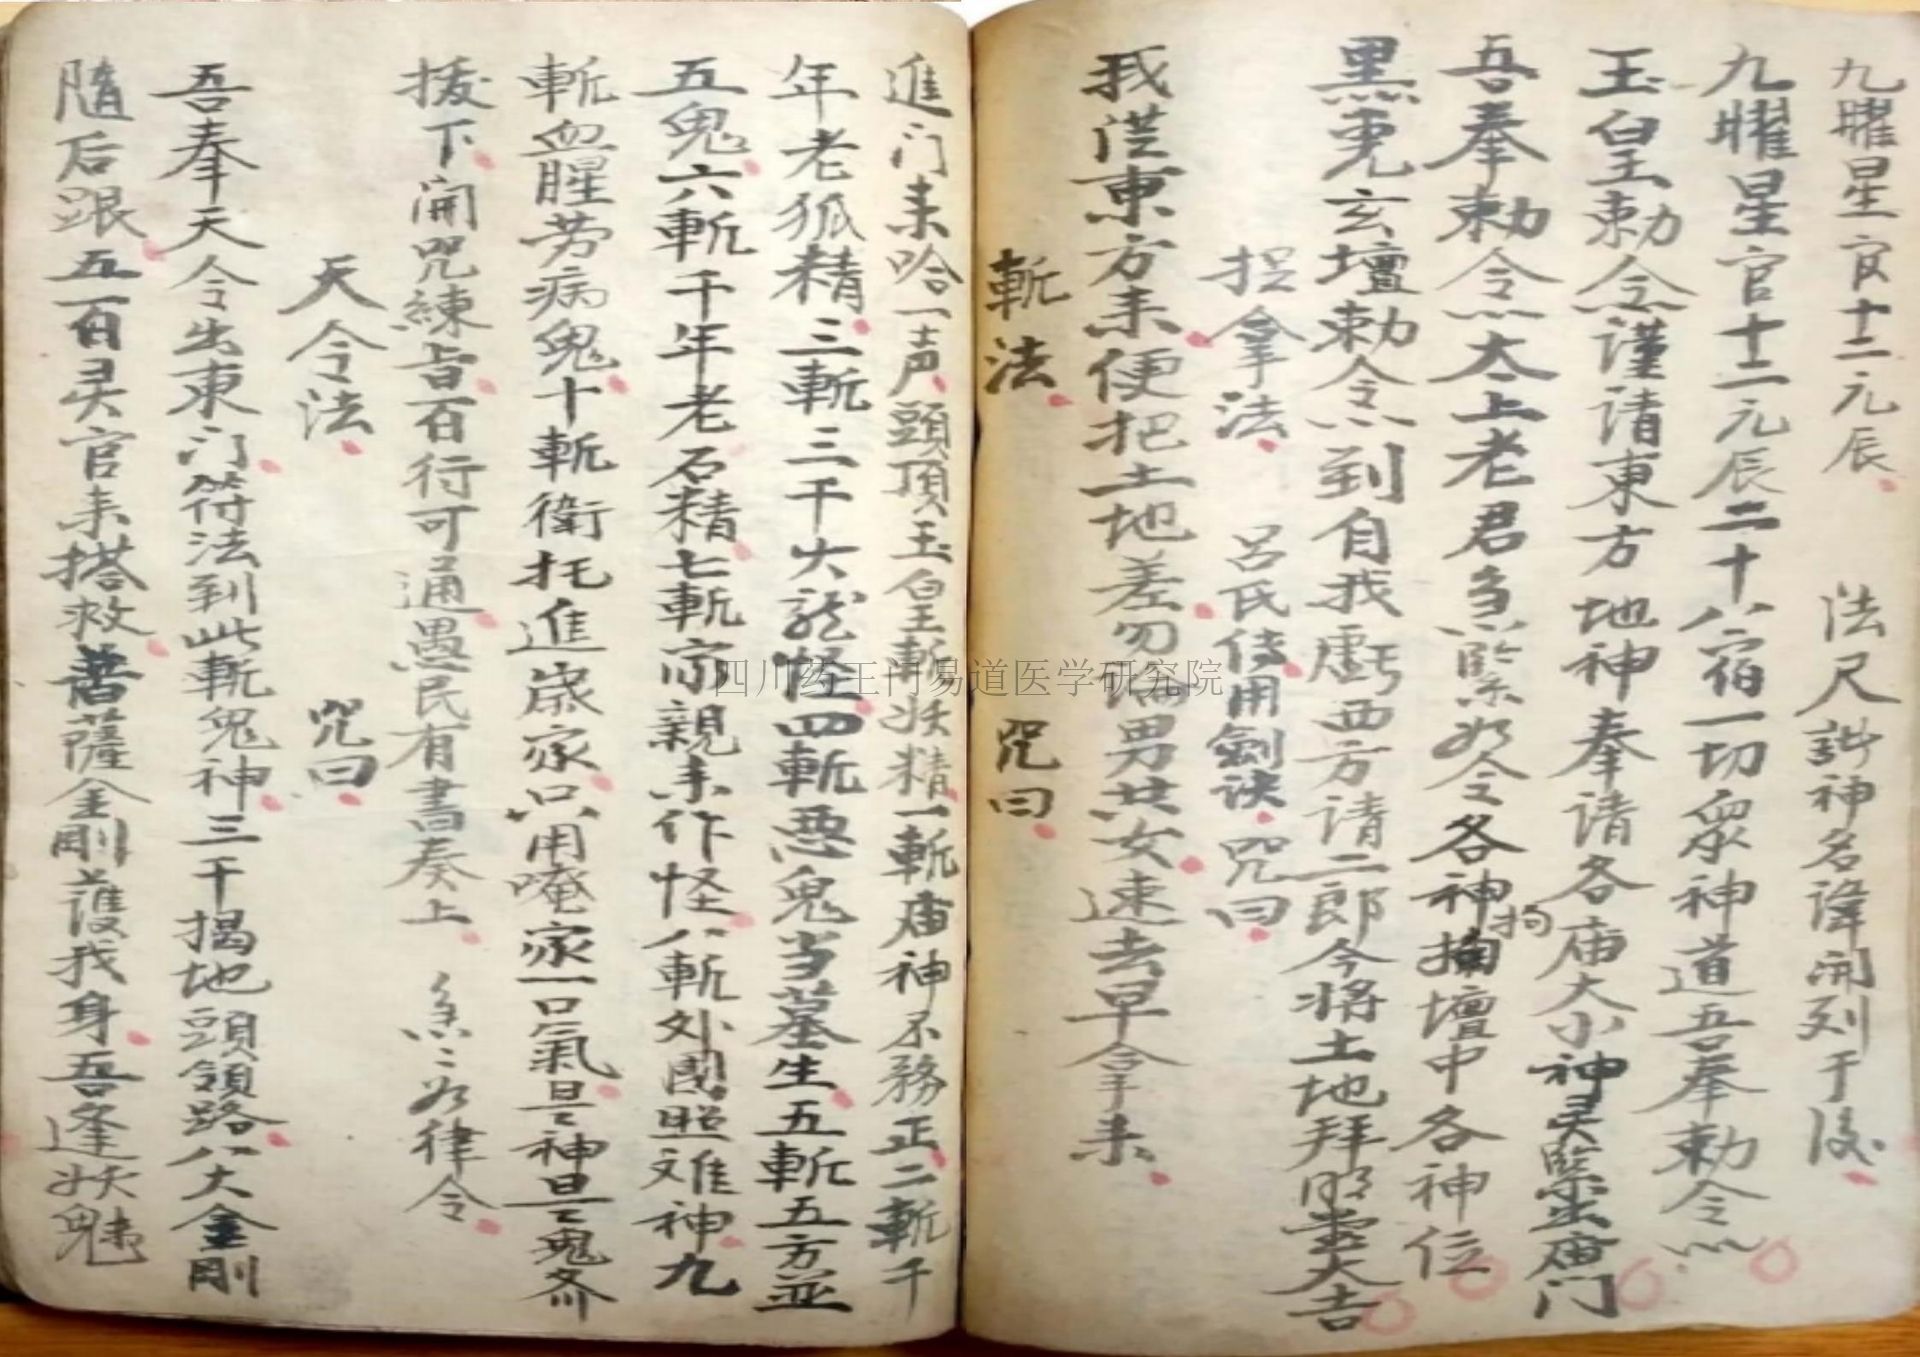 九曜星官十二元辰 法尺訓神名諱開列于後
九曜星官十二元辰二十八宿一切衆神道吾奉勅令
玉皇勅令謹請東方地神奉請各庙大小神灵緊出庙门
吾奉勅令太上老君急緊如令各神拘壇中各神位
黑虎玄壇勅令到自我虧西方請二郎今将土地拜明臺大吉
捉拿法 呂氏传用劍诀咒曰
我從東方来便把土地差勿論男共女速去早拿来
斬法 咒曰
進门来哈一声頭頂玉皇斬妖精一斬庙神不務正二斬千
年老狐精三斬三千大龙怪四斬惡鬼当墓生五斬五方並
五鬼六斬千年老石精七斬家親来作怪八斬外國照难神九
斬血腥劳病鬼十斬衝托進崴家只用唵家一口氣是神是鬼
拔下開咒練旨百行可通愚民有書奏上 急々如律令
天令法 咒曰
吾奉天令出東门符法到此斬鬼神三千揭地頭領路八大金剛
隨后跟五百灵官来搭救菩薩金剛護我身吾逢妖魅
四川药王门易道医学研究院